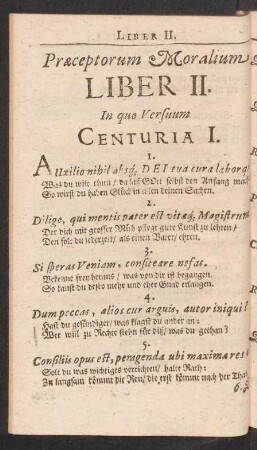 LIBER II.
Præceptorum Moralium
LIBER II.
In quo Versuum
CENTURIA I.
1.
AUxilio nihil absq; DEI tua cura laborq
Was du wilt thun / da laß GOtt selbst den Anfang mac
So wirst du haben Glück in allen deinen Sachen.
2.
Dilige, qui mentis pater est vitæq; Magistrum
Der dich mit grosser Müh pflegt gute Kunst zu lehren /
Den solt du jederzeit / als einen Vater / ehren.
3.
Si speras Veniam, confiteare nefas.
Bekenne frey heraus / was von dir ist begangen.
So kanst du desto mehr und eher Gnad erlangen.
4.
Dum peccas, alios cur arguis, autor iniqui?
Hast du gesündiget / was klagst du ander an:
Wer will zu Rechte stehn für diß / was du gethan?
5.
Consiliis opus est, peragenda ubi maxima res
Solt du was wichtiges verrichten / halte Rath:
Zu langsam kömmt die Reu / die erst kömmt nach der That
6.